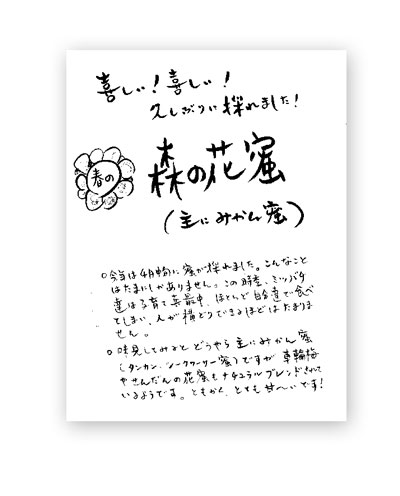 喜しい！喜しい！
久しぶりに採れました！
春の
森の花蜜
（主にみかん蜜）
○今年は4月中旬に蜜が採れました。こんなこと
はたまにしかありません。この時季、ミツバチ
達は子育て真最中、ほとんど自分達で食べ
てしまい、人が横どりできるほどはたまりま
せん。
○味見してみると どうやら 主にみかん蜜
（タンカン、シークワーサー蜜）ですが 車輪梅
やせんだんの花蜜もナチュラルブレンドされて
いるようです。ともかく、とても甘〜いです！